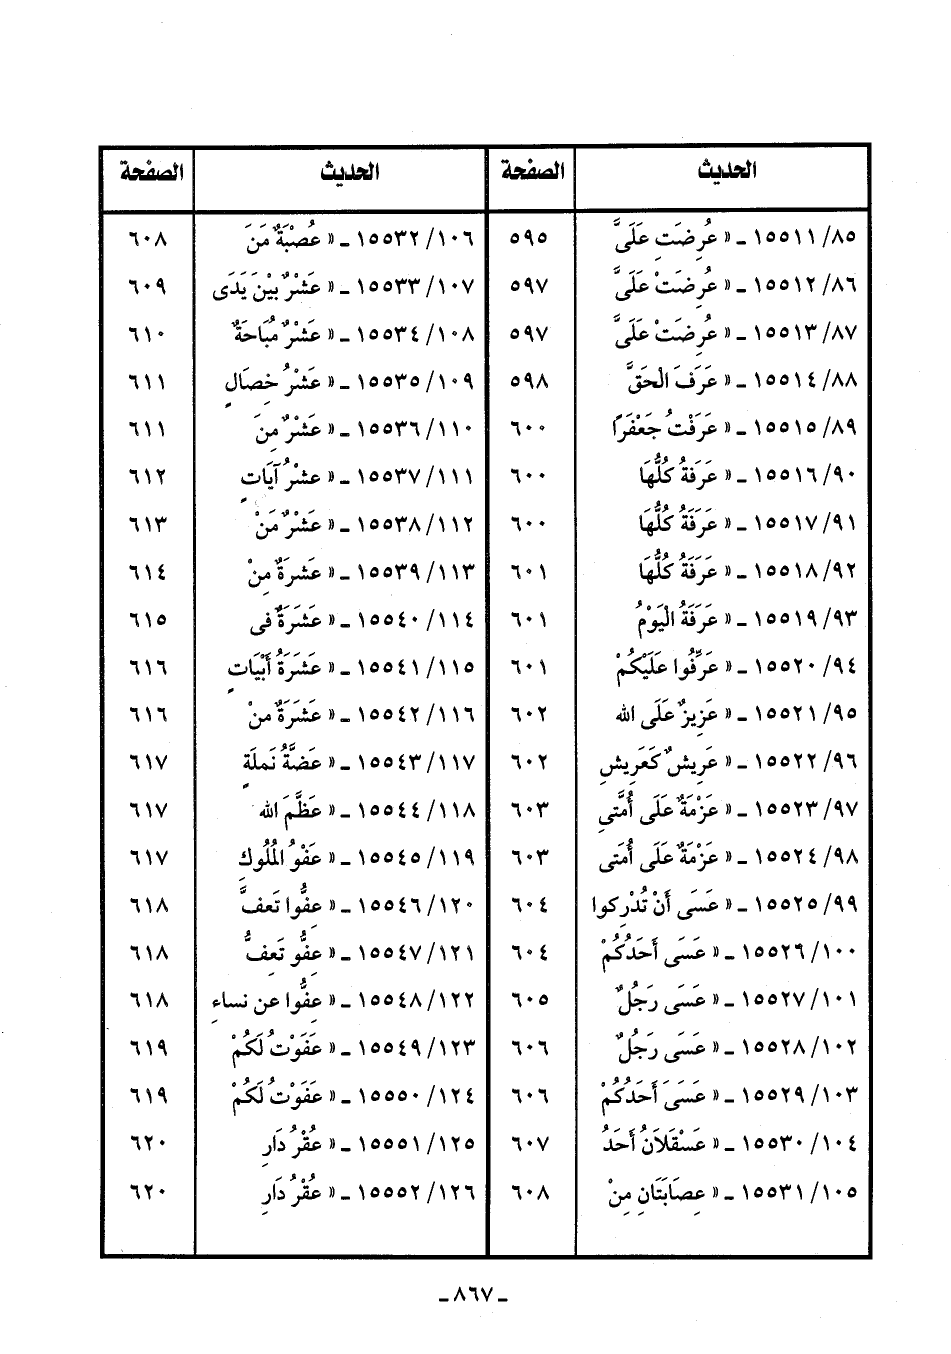 الحديث الصفحة الحديث الصفحة
٨٥/ ١٥٥١١ ـ « عُرِضَتِ عَلَىَّ ٥٩٥ ١٠٦/ ١٥٥٣٢ ـ « عُصْبَةٌ مَنَ ٦٠٨
٨٦/ ١٥٥١٢ ـ « عُرِضَتْ عَلَىَّ ٥٩٧ ١٠٧/ ١٥٥٣٣ ـ « عَشْرٌ بَيْنَ يَدَى ٦٠٩
٨٧/ ١٥٥١٣ ـ « عُرِضَتْ عَلَىَّ ٥٩٧ ١٠٨/ ١٥٥٣٤ ـ « عَشْرٌ مُبَاحَةٌ ٦١٠
٨٨/ ١٥٥١٤ ـ « عَرَفَ الْحَقَّ ٥٩٨ ١٠٩/ ١٥٥٣٥ ـ « عَشْرُ خِصَالٍ ٦١١
٨٩/ ١٥٥١٥ ـ « عَرَفْتُ جَعْفَرًا ٦٠٠ ١١٠/ ١٥٥٣٦ ـ « عَشْرٌ مِنَ ٦١١
٩٠/ ١٥٥١٦ ـ « عَرَفَةُ كُلُّهَا ٦٠٠ ١١١/ ١٥٥٣٧ ـ « عشْرُ آيَاتٍ ٦١٢
٩١/ ١٥٥١٧ ـ « عَرَفَةُ كُلُّهَا ٦٠٠ ١١٢/ ١٥٥٣٨ ـ « عَشْرٌ مَنْ ٦١٣
٩٢/ ١٥٥١٨ ـ « عَرَفَةُ كُلُّهَا ٦٠١ ١١٣/ ١٥٥٣٩ ـ « عَشرَةٌ مِنْ ٦١٤
٩٣/ ١٥٥١٩ ـ « عَرَفَةُ الْيَوْمُ ٦٠١ ١١٤/ ١٥٥٤٠ ـ « عَشَرَةٌ فى ٦١٥
٩٤/ ١٥٥٢٠ ـ « عَرِّفُوا عَلَيْكُمْ ٦٠١ ١١٥/ ١٥٥٤١ ـ « عَشَرَةُ أَبْيَاتٍ ٦١٦
٩٥/ ١٥٥٢١ ـ « عَزِيزٌ عَلَى الله ٦٠٢ ١١٦/ ١٥٥٤٢ ـ « عَشَرَةٌ منْ ٦١٦
٩٦/ ١٥٥٢٢ ـ « عَرِيشٌ كَعَرِيشِ ٦٠٢ ١١٧/ ١٥٥٤٣ ـ « عَضَّةُ نَملَةٍ ٦١٧
٩٧/ ١٥٥٢٣ ـ « عَزْمَةٌ عَلَى أُمَّتِى ٦٠٣ ١١٨/ ١٥٥٤٤ ـ « عَظَّمَ الله ٦١٧
٩٨/ ١٥٥٢٤ ـ « عَزْمَةٌ عَلَى أُمَتى ٦٠٣ ١١٩/ ١٥٥٤٥ ـ « عَفْوُ الْمُلُوكِ ٦١٧
٩٩/ ١٥٥٢٥ ـ « عَسَى أَنْ تُدْرِكوا ٦٠٤ ١٢٠/ ١٥٥٤٦ ـ « عِفُّوا تَعفَّ ٦١٨
١٠٠/ ١٥٥٢٦ ـ « عَسَى أَحَدُكُمْ ٦٠٤ ١٢١/ ١٥٥٤٧ ـ « عِفُّو تَعِفُّ ٦١٨
١٠١/ ١٥٥٢٧ ـ « عَسَى رَجُلٌ ٦٠٥ ١٢٢/ ١٥٥٤٨ ـ « عِفُّوا عن نساءِ ٦١٨
١٠٢/ ١٥٥٢٨ ـ « عَسَى رَجُلٌ ٦٠٦ ١٢٣/ ١٥٥٤٩ ـ « عَفَوْتُ لَكُمْ ٦١٩
١٠٣/ ١٥٥٢٩ ـ « عَسَىَ أَحَدُكُمْ ٦٠٦ ١٢٤/ ١٥٥٥٠ ـ « عَفَوْتُ لَكُمْ ٦١٩
١٠٤/ ١٥٥٣٠ ـ « عَسْقَلاَنُ أَحَدُ ٦٠٧ ١٢٥/ ١٥٥٥١ ـ « عُقْرُ دَارِ ٦٢٠
١٠٥/ ١٥٥٣١ ـ « عِصَابَتَانِ مِنْ ٦٠٨ ١٢٦/ ١٥٥٥٢ ـ « عُقْرُ دَارِ ٦٢٠
ـ ٨٦٧ ـ